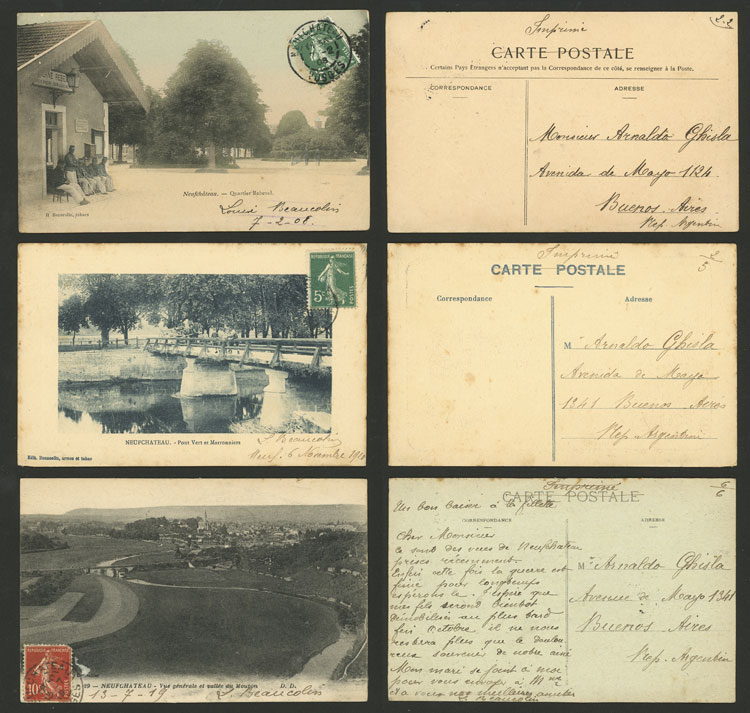 NEUFCHATEAU
VOSGES
Neufchâteau. — Quartier Rebeval.
Louise Beaucolin
7-2-08.
Imprimé
2-2
CARTE POSTALE
Certains Pays Étrangers n'acceptent pas la Correspondance de ce côté, se renseigner à la Poste.
CORRESPONDANCE
ADRESSE
Monsieur Arnaldo Ghisla
Avenida de Mayo 1124
Buenos-Aires
Rep. Argentin
REPUBLIQUE FRANÇAISE
5c
NEUFCHATEAU. - Pont Vert et Marronniers
L Beaucolin
Neuf. 6 Novembre 1910
Imprimé
2
5
CARTE POSTALE
Correspondance
Adresse
Mr Arnaldo Ghisla
Avenida de Mayo
1341 Buenos Aires
Rep. Argentini
10c
NEUFCHATEAU - Vue générale et vallée du Mouzon
D. D.
13-7-19
L. Beaucolin
Imprimé
6
6
CARTE POSTALE
CORRESPONDANCE
ADRESSE
Un bon baiser à la fillette
Cher Monsieur
Ce sont des vues de Neufchateau
prises récemment.
Enfin cette fois la guerre est
finie pour longtemps
espérons le. J'espère que
mes fils seront bientot
démobilisés au plus tard
fin Octobre il ne nous
restera plus que le doulou
reux souvenir de notre ainé
Mon mari se joint à moi
pour vous envoyer à Mme
et à vous nos meilleures amitiés
L Beaucolin
Mr Arnaldo Ghisla
Avenue de Mayo 1341
à
Buenos-Aires
Rep. Argentin